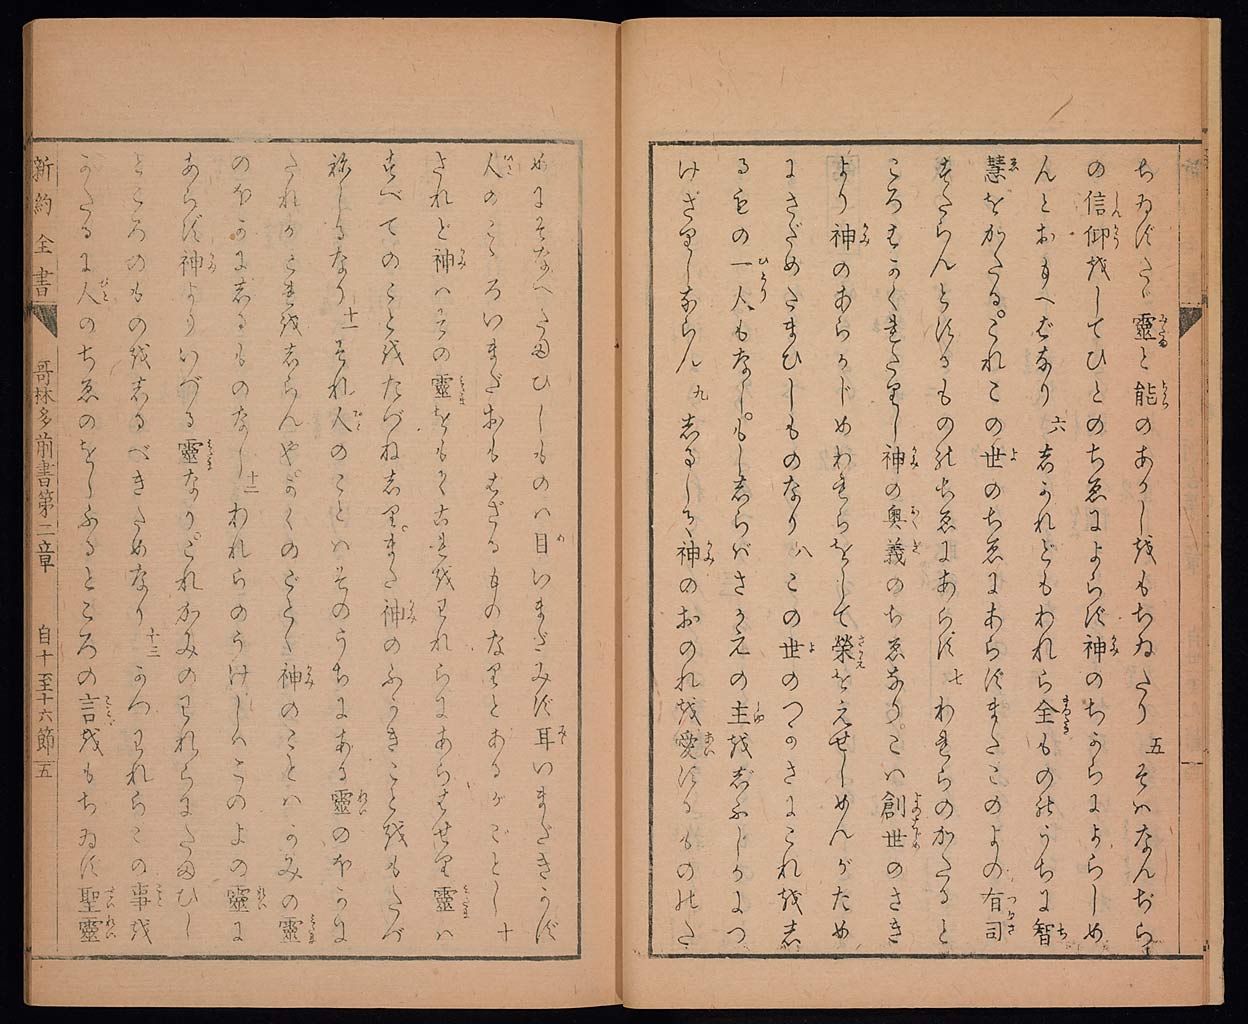 ちゐずたゞ靈と能のあかしをもちゐたり 五 そはなんぢら
の信仰をしてひとのちゑによらず神のちからによらしめ
んとおもへばなり 六 されどもわれら全ものゝうちに智
慧をかたる。これこの世のちゑにあらずまたこのよの有司
すたらんとするものゝちゑにあらず 七 われらのかたると
ころはかくれたりし神の奧義のちゑなり。こは創世のさき
より神のあらかじめわれらをして榮をえせしめんがため
にさだめたまひしものなり 八 この世のつかさにこれを志
るもの一人もなし。もし志らばさかえの主を志ふじかにつ
けざりしならん 九 志るして神のおのれを愛するものゝた
めにそなへたまひしものは目いまだみず耳いまだきかず
人のこゝろいまだおもはざるものなりとあるがごとし 十
されど神はその靈をもてこれをわれらにあらはせり靈は
すべてのことをたづね志り。また神のふかきことをもたづ
ねしるなり 十一 それ人のことはそのうちにある靈のほかに
たれかこれを志らんや。かくのごとく神のことはかみの靈
のほかに志るものなし 十二 われらのうけしはこのよの靈に
あらず神よりいづる靈なり。これかみのわれらにたまひし
ところのものを志るべきためなり 十三 かつわれらこの事を
かたるに人のちゑのをしふるところの言をもちゐず聖靈
新約全書 哥林多前書第二章 自十至十六節 五